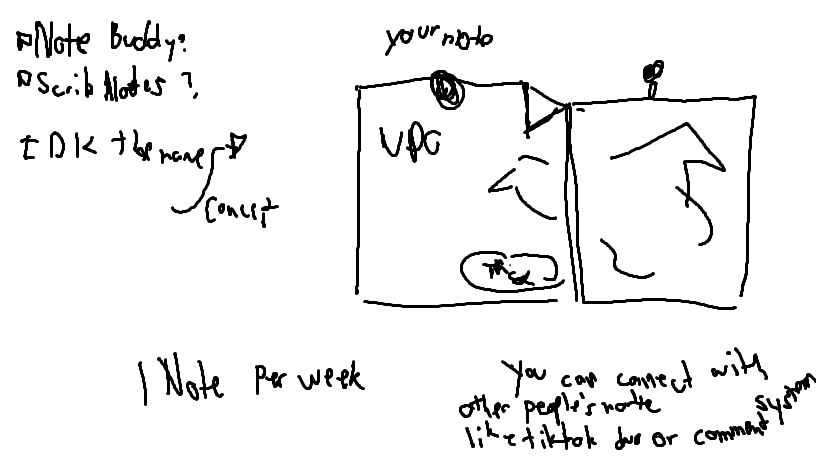 Note Buddy?
Scrib Notes?
IDK the name
Concept
your note
1 Note per week
You can connect with
other people's note
like tiktok duo or comment system